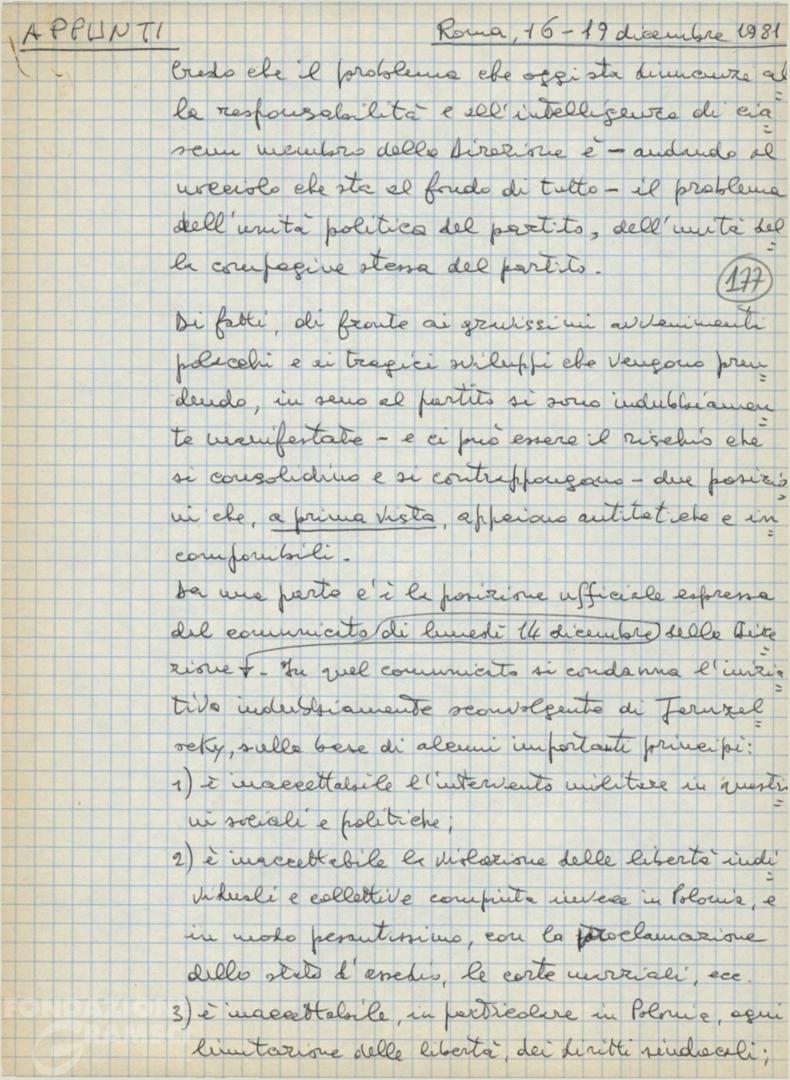 APPUNTI Roma, 16-19 dicembre 1981
Credo che il problema che oggi sta dinnanzi al=
la responsabilità e all'intelligenza di cia=
scun membro della Direzione è - andando al
nocciolo che sta al fondo di tutto - il problema
dell'unità politica del partito, dell'unità del=
la compagine stessa del partito.
177
Di fatti, di fronte ai gravissimi avvenimenti
polacchi e ai tragici sviluppi che vengono pren=
dendo, in seno al partito si sono indubbiamen=
te manifestate - e ci può essere il rischio che
si consolidino e si contrappongano - due posizio=
ni che, a prima vista, appaiono antitetiche e in=
componibili.
Da una parte c'è la posizione ufficiale espressa
dal comunicato di lunedì 14 dicembre della Dire=
zione. In quel comunicato si condanna l'inizia=
tiva indubbiamente sconvolgente di Jaruzel=
scky, sulla base di alcuni importanti principi:
1) è inaccettabile l'intervento militare in questio=
ni sociali e politiche;
2) è inaccettabile la violazione delle libertà indi=
viduali e collettive compiuta invece in Polonia, e
in modo pesantissimo, con la proclamazione
dello stato d'assedio, le corte marziali, ecc.
3) è inaccettabile, in particolare in Polonia, ogni
limitazione delle libertà, dei diritti sindacali;
FONDAZIONE
GRAMSCI